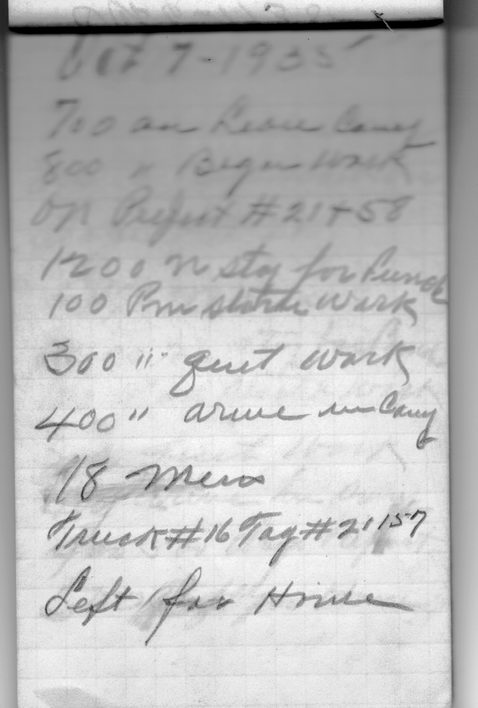 Oct 7-1935
700 am Leave Camp
800 " Begin Work
on Project #21+58
1200 N stop for Lunch
100 Pm starte Work
300 " quit work
400 " arive in Camp
18 Mens
Truck #16 Tag #21157
Left for Home